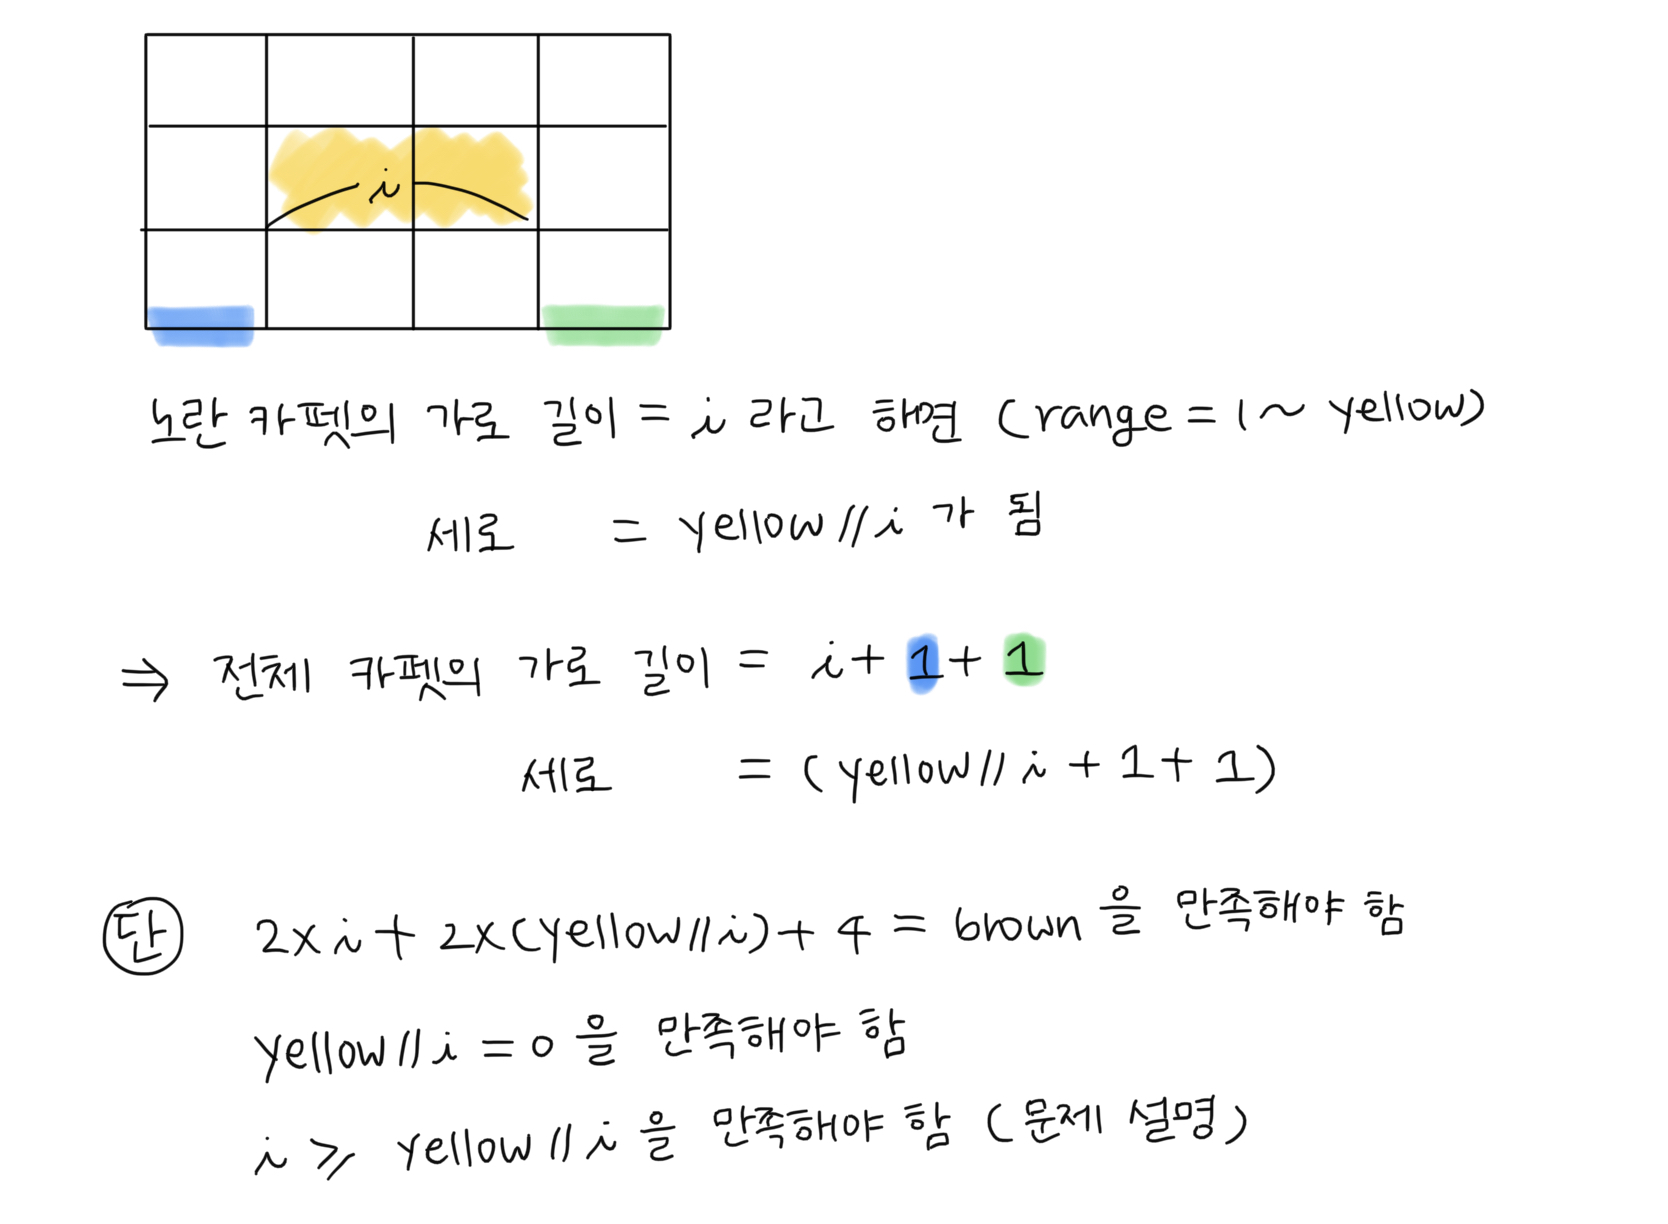 i
노란 카펫의 가로 길이 = i 라고 하면 (range = 1 ~ yellow)
세로 = yellow//i 가 됨
⇒ 전체 카펫의 가로 길이 = i + 1 + 1
세로 = (yellow//i + 1 + 1)
단 2x i + 2x(yellow//i) + 4 = brown 을 만족해야 함
yellow//i = 0 을 만족해야 함
i ≥ yellow//i 을 만족해야 함 (문제 설명)